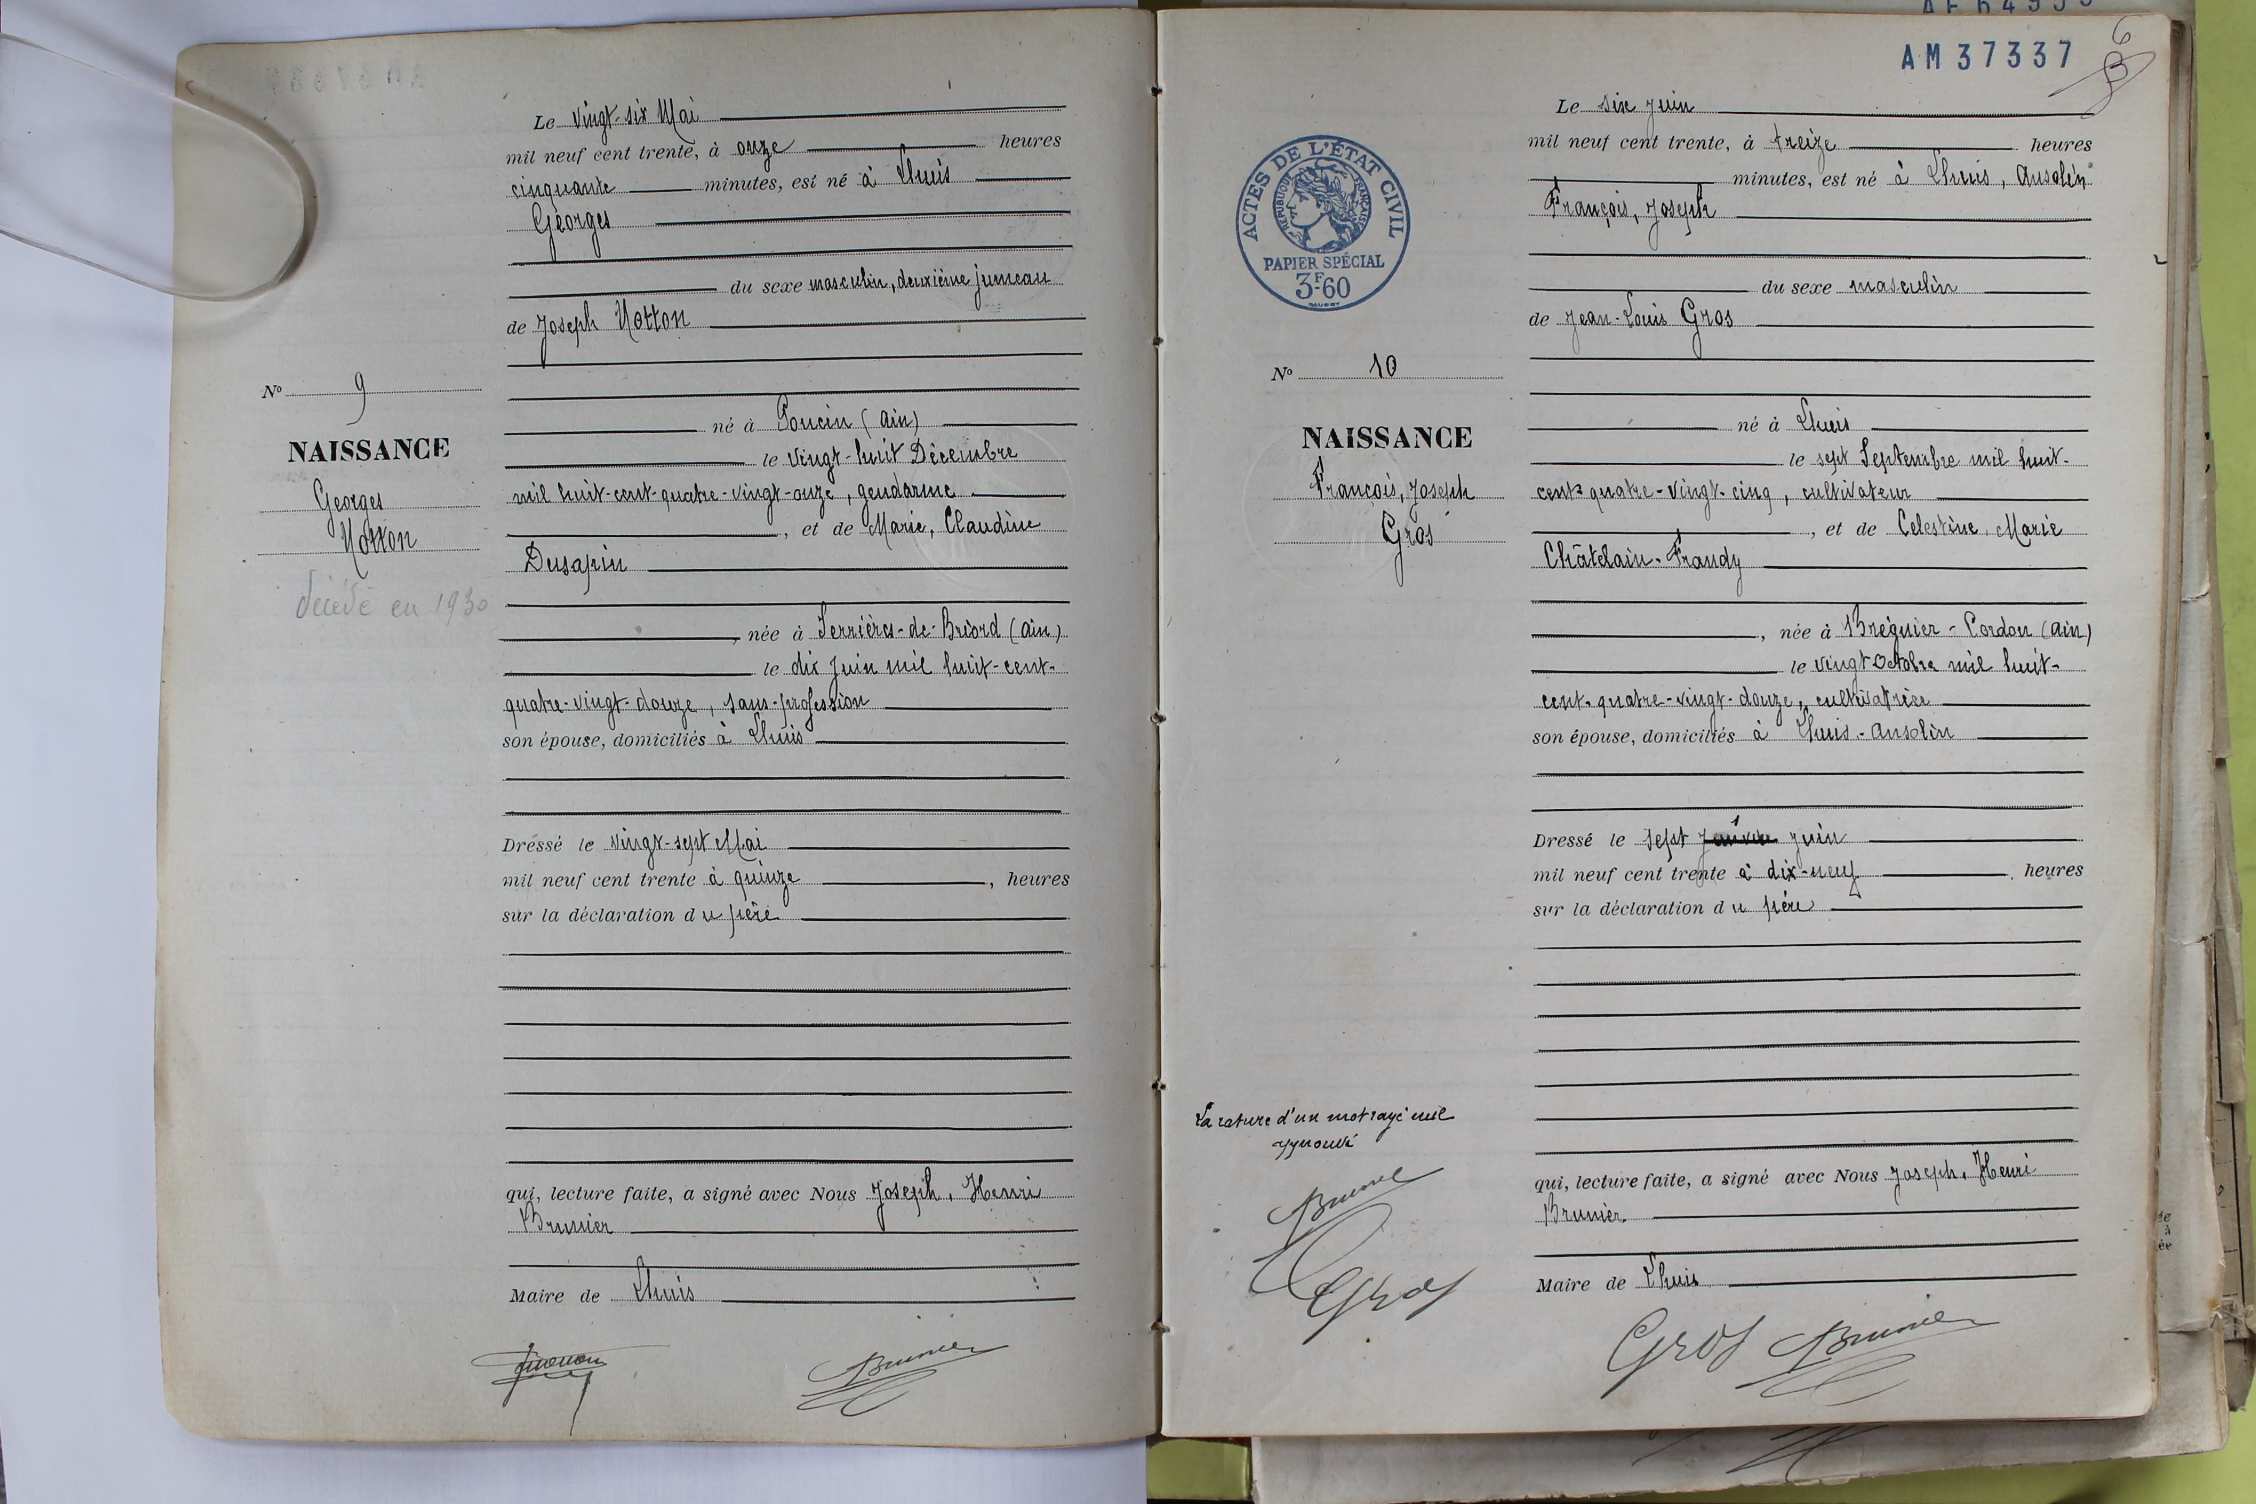 Le vingt-six Mai
mil neuf cent trente, à onze heures
cinquante minutes, est né à Lhuis
Georges
du sexe masculin, deuxième jumeau
de Joseph Notton
né à Poncin (Ain)
le vingt-huit Décembre
mil huit-cent-quatre-vingt-onze, gendarme
, et de Marie, Claudine
Dusapin
, née à Serrières-de-Briord (Ain)
le dix Juin mil huit-cent-
quatre-vingt-douze, sans-profession
son épouse, domiciliés à Lhuis
Dressé le vingt-sept Mai
mil neuf cent trente à quinze , heures
sur la déclaration du père
qui, lecture faite, a signé avec Nous Joseph, Henri
Brunier
Maire de Lhuis
Brunier
No 9
NAISSANCE
Georges
Notton
décédé en 1930
AM 37337
36
Le six Juin
mil neuf cent trente, à treize heures
minutes, est né à Lhuis, Ansolin
François, Joseph
du sexe masculin
de Jean-Louis Gros
né à Lhuis
le sept Septembre mil huit-
cent quatre-vingt-cinq, cultivateur
, et de Celestine, Marie
Châtelain-Frandy
, née à Brégnier-Cordon (Ain)
le vingt Octobre mil huit-
cent-quatre-vingt-douze, cultivatrice
son épouse, domiciliés à Lhuis-Ansolin
Dressé le sept Janvier juin
mil neuf cent trente à dix-neuf , heures
sur la déclaration du père
qui, lecture faite, a signé avec Nous Joseph, Henri
Brunier.
Maire de Lhuis
Gros Brunier
ACTES DE L'ÉTAT CIVIL
RÉPUBLIQUE FRANÇAISE
PAPIER SPÉCIAL
3F60
No 10
NAISSANCE
François, Joseph
Gros
La rature d'un mot rayé nul
approuvé
Brunier
Gros